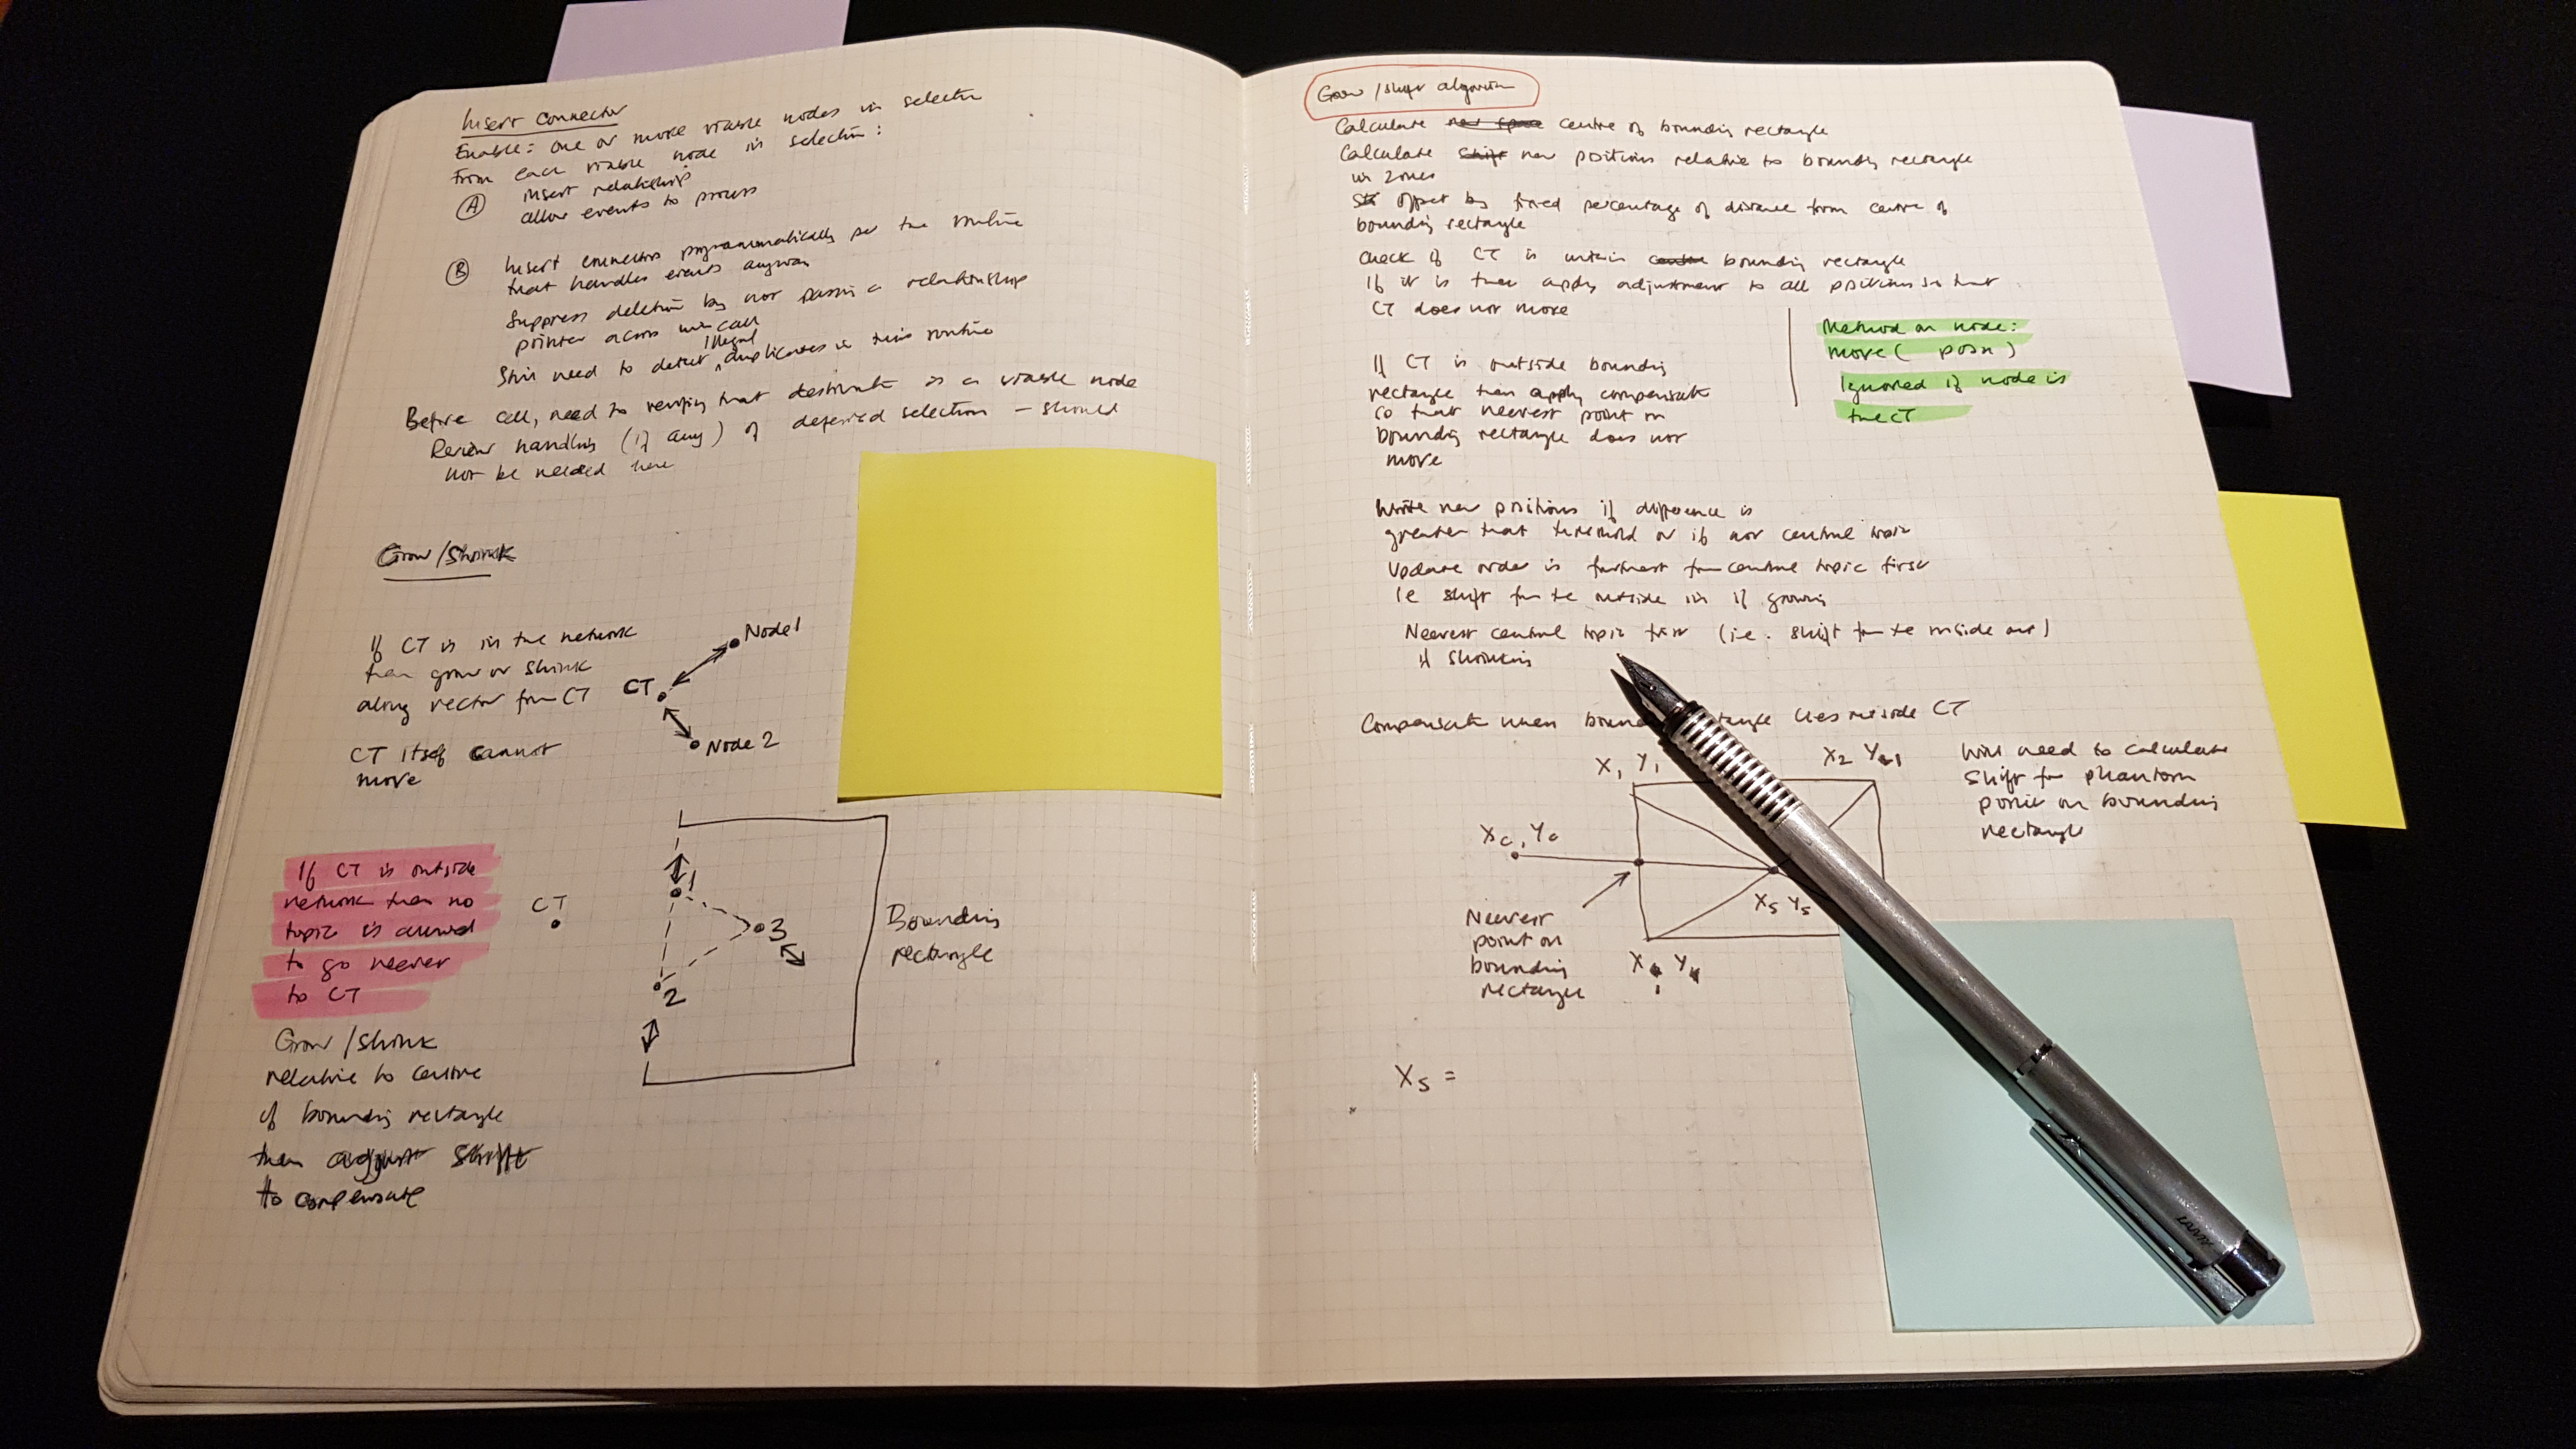 Insert Connector
Enable: One or more viable nodes in selectn
From each viable node in selection:
A insert relationship
allow events to process
B Insert connectors programmatically per the routine
that handles events anyway
Suppress deletion by not passing a relationship
pointer across with call
Still need to detect illegal duplicates in this routine
Before call, need to verify that destinate is a viable node
Review handling (if any) of deferred selection – should
not be needed here
Grow/Shrink
If CT is in the network
then grow or shrink
along vector from CT
CT itself cannot
move
Node 1
CT
Node 2
If CT is outside
network then no
topic is allowed
to go nearer
to CT
CT
1
3
2
Bounding
rectangle
Grow/Shrink
relative to centre
of bounding rectangle
then adjust shift
to compensate
Grow/Shift algorithm
Calculate centre of bounding rectangle
Calculate new positions relative to bounding rectangle
in zones
offset by fixed percentage of distance from centre of
bounding rectangle
Check if CT is within bounding rectangle
If it is then apply adjustment to all positions so that
CT does not move
If CT is outside bounding
rectangle then apply compensate
so that nearest point on
bounding rectangle does not
move
Method on node:
move( posn )
Ignored if node is
the CT
Write new positions if difference is
greater that threshold or if not central topic
Update order is furthest from central topic first
ie shift from the outside in if growing
Nearest central topic first (i.e. shift from the inside out)
if shrinking
Compensate when rectangle lies CT
X1 Y1
X2 Y1
Will need to calculate
shift for phantom
point on bounding
rectangle
Xc, Yc
X5 Y5
Nearest
point on
bounding
rectangle
X Y
X5 =
LAMY